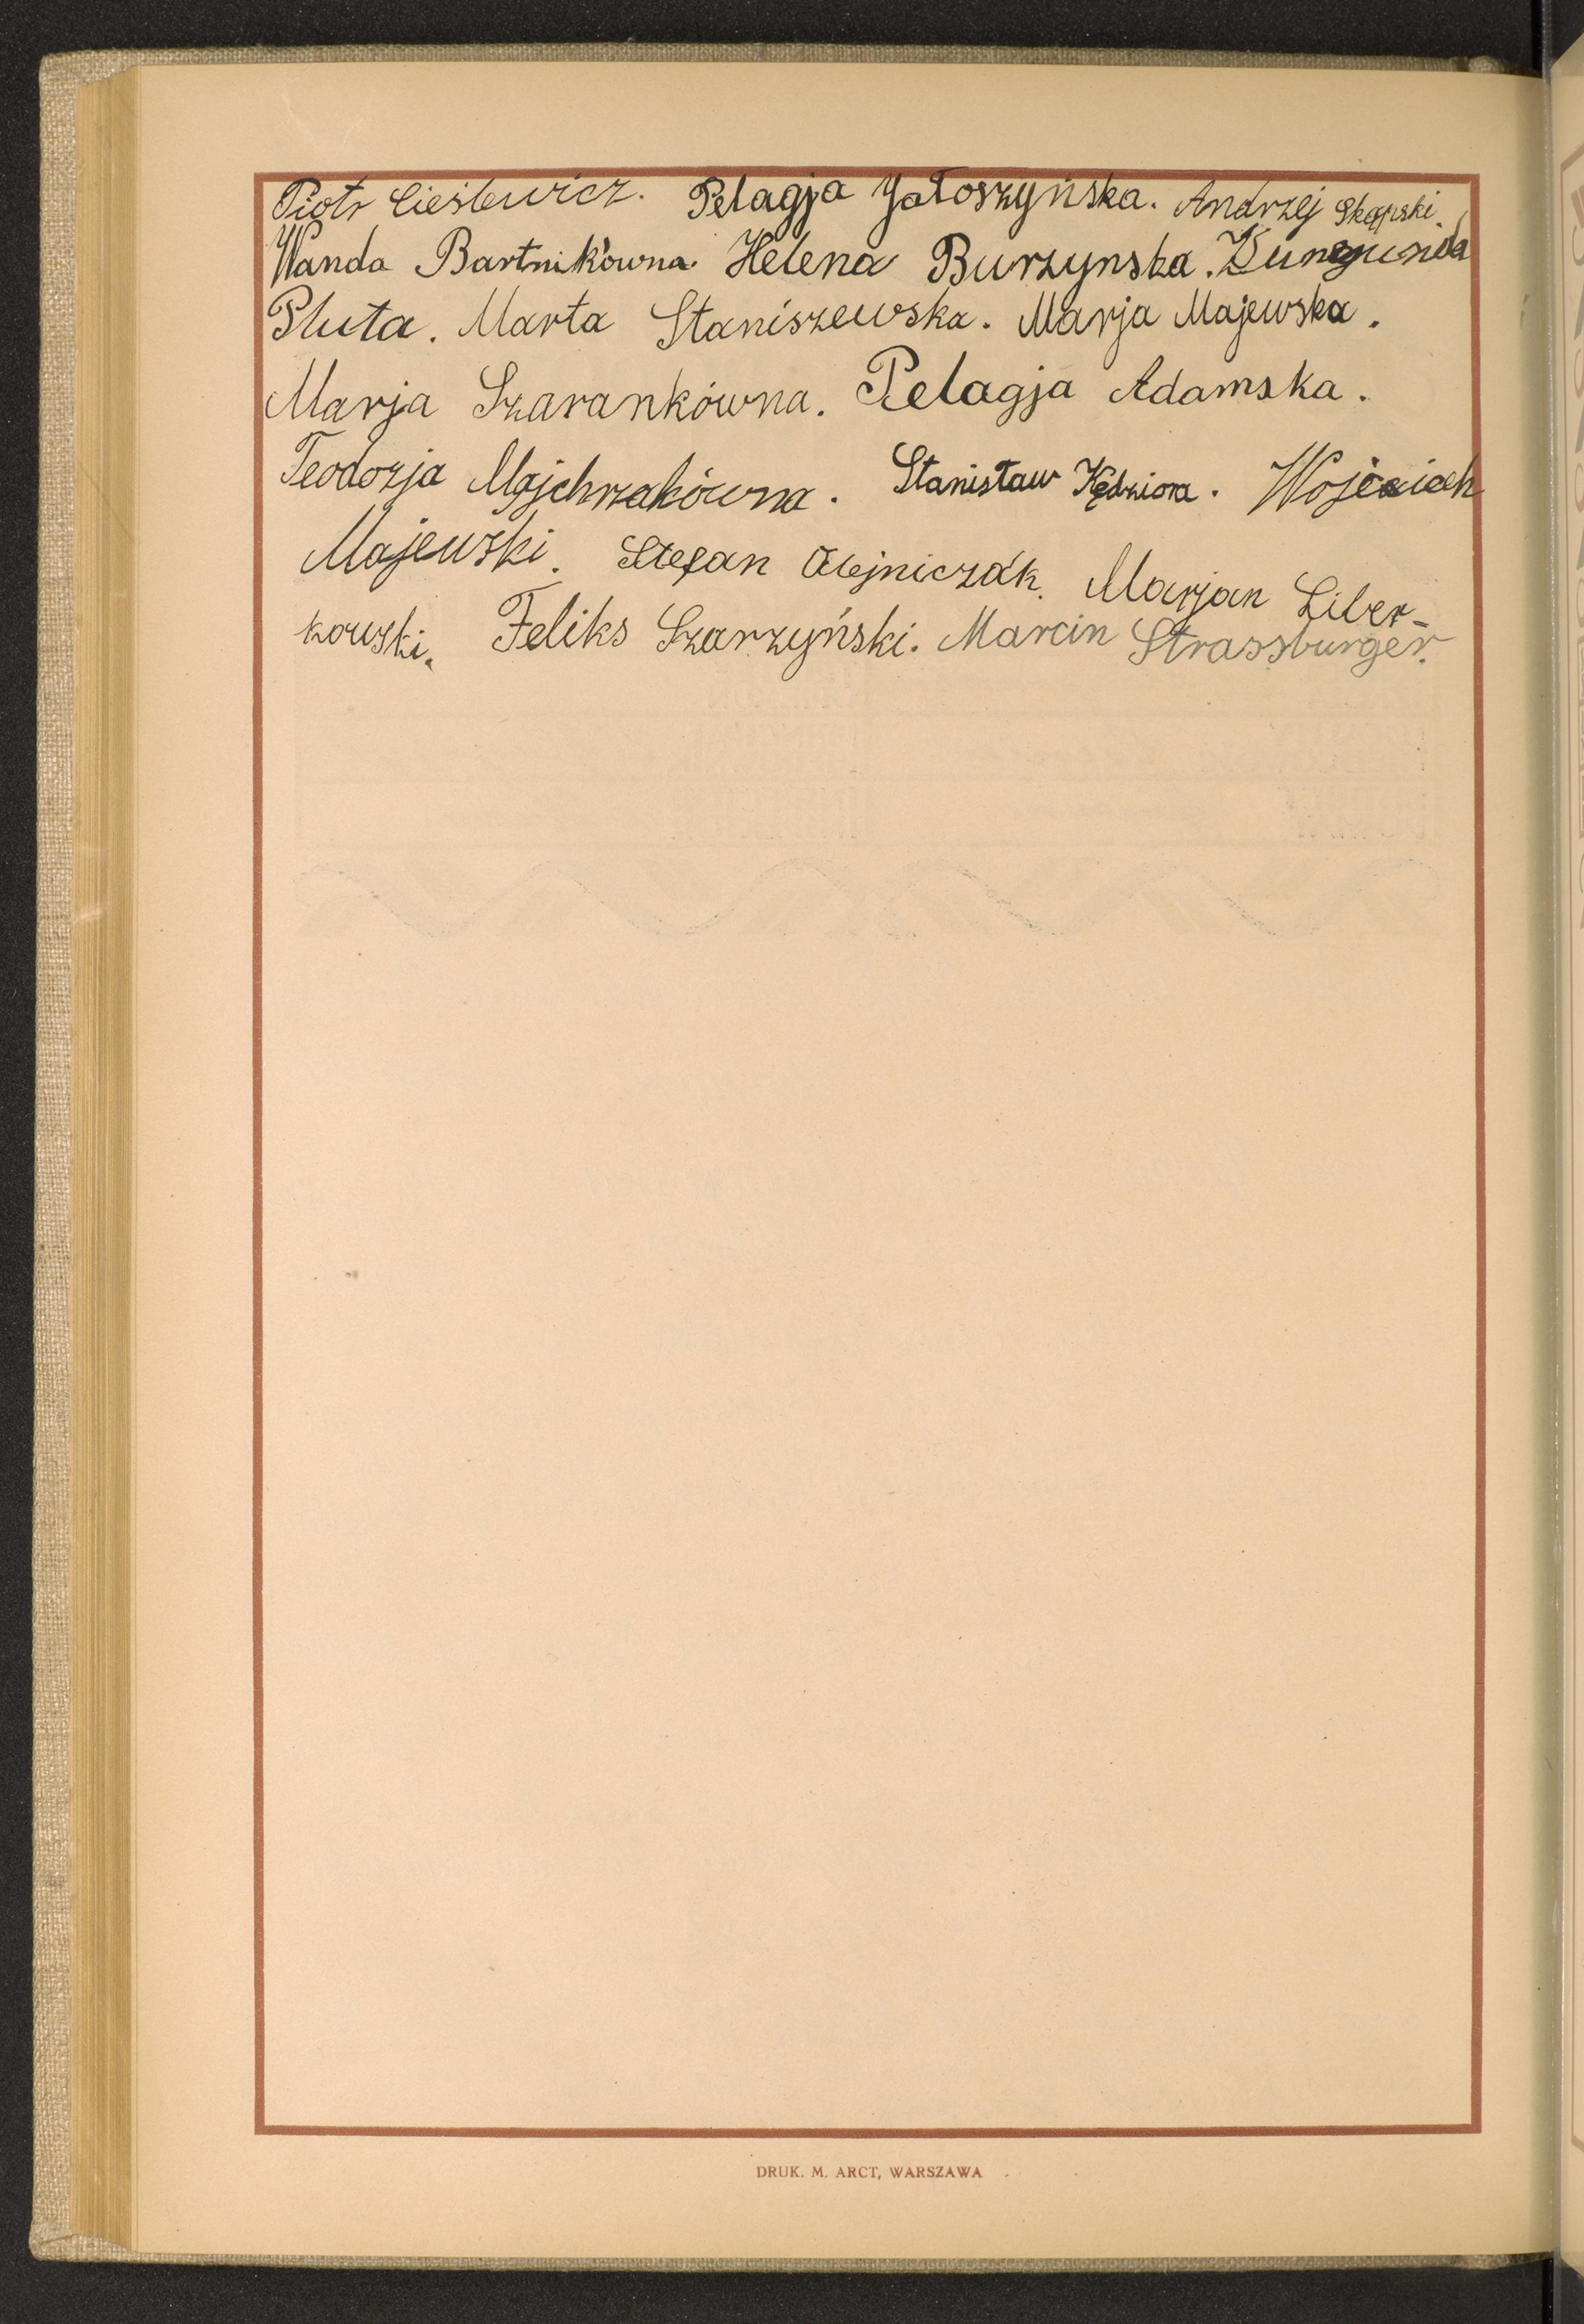 Piotr Cieślewicz. Pelagja Jatoszyńska. Andrzej Skąpski.
Wanda Bartnikówna. Helena Burzynska. Kunegunda
Pluta. Marta Staniszewska. Marja Majewska.
Marja Szarankówna. Pelagja Adamska.
Teodozja Majchrzakówna. Stanisław Kędziora. Wojciech
Majewski. Stefan Olejniczak. Marjan Liber-
kowski. Feliks Szarzyński. Marcin Strassburger.
DRUK. M. ARCT, WARSZAWA